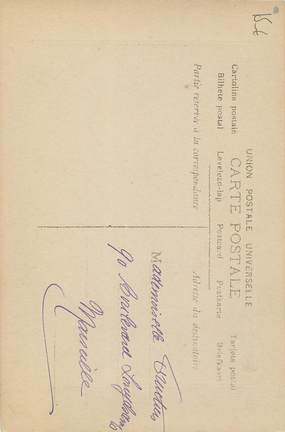 15 €
UNION POSTALE UNIVERSELLE
CARTE POSTALE
Cartolina postale Levelező-lap Postcard Postkarte Tarjeta postal
Bilhete postal Briefkaart
Partie réservée à la correspondance
Adresse du destinataire
Mademoiselle
90 Boulevard
Marseille